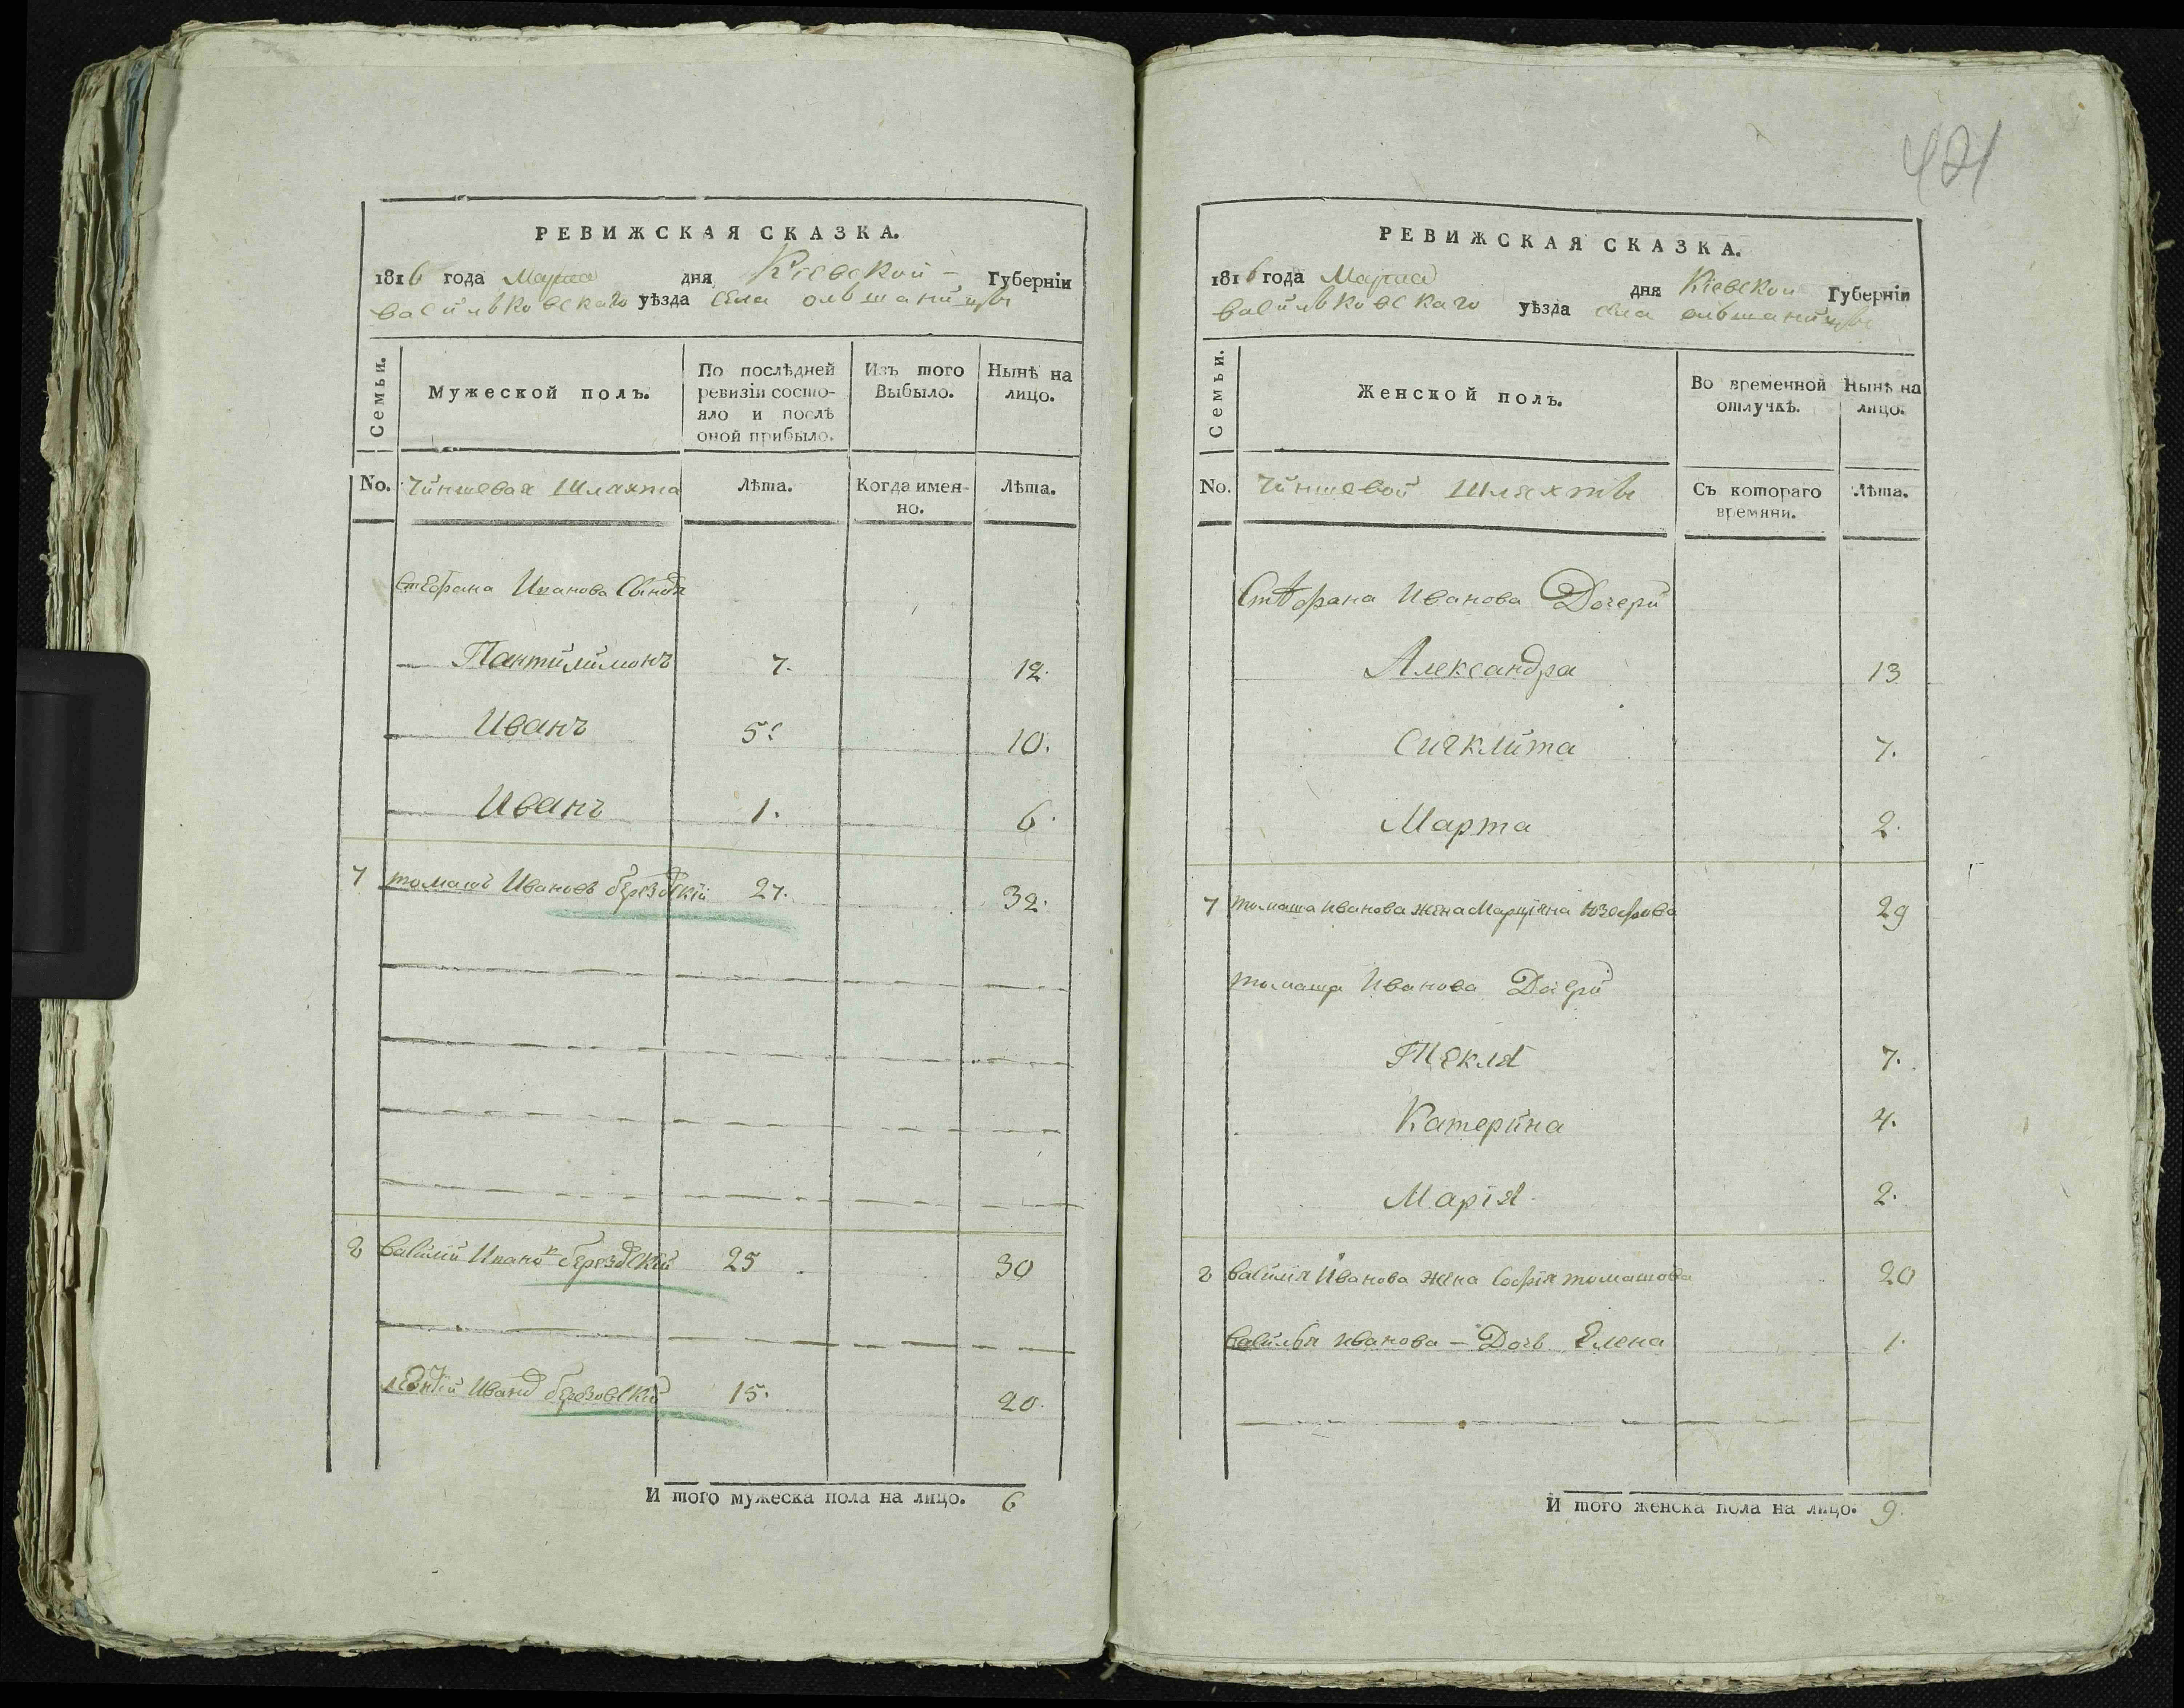 РЕВИЖСКАЯ СКАЗКА.
1816 года Марта дня Кіевской Губерніи
васильковскаго уѣзда села ольшаницы
Семьи.
Мужеской полъ.
По послѣдней ревизіи состо-
яло и послѣ
оной прибыло.
Изъ того
Выбыло.
Нынѣ на
лицо.
No. Чиншевая Шляхта Лѣта. Когда имен-
но. Лѣта.
Стефана Иванова Сыновя
Пантилимонъ 7. 12.
Иванъ 5. 10.
Иванъ 1. 6.
7 томашъ Ивановъ березовскій 27. 32.
8 василій березовскій 25 30
березовскій 15. 20.
И того мужеска пола на лицо. 6
421
РЕВИЖСКАЯ СКАЗКА.
1816 года Марта дня Кіевской Губерніи
васильковскаго уѣзда села ольшаницы
Семьи.
Женской полъ.
Во временной
отлучкѣ.
Нынѣ на
лицо.
No. Чиншевой Шляхты Съ котораго
времяни. Лѣта.
Стефана Иванова Дочери
Александра 13
Сигклита 7.
Марта 2.
7 томаша иванова жена Марціяна юзефова 29
томаша Иванова Дочери
Текля 7.
Катерина 4.
Марія 2.
8 василія Иванова жена Софія томашова 20
василья иванова — Дочь Елена 1.
И того женска пола на лицо. 9.